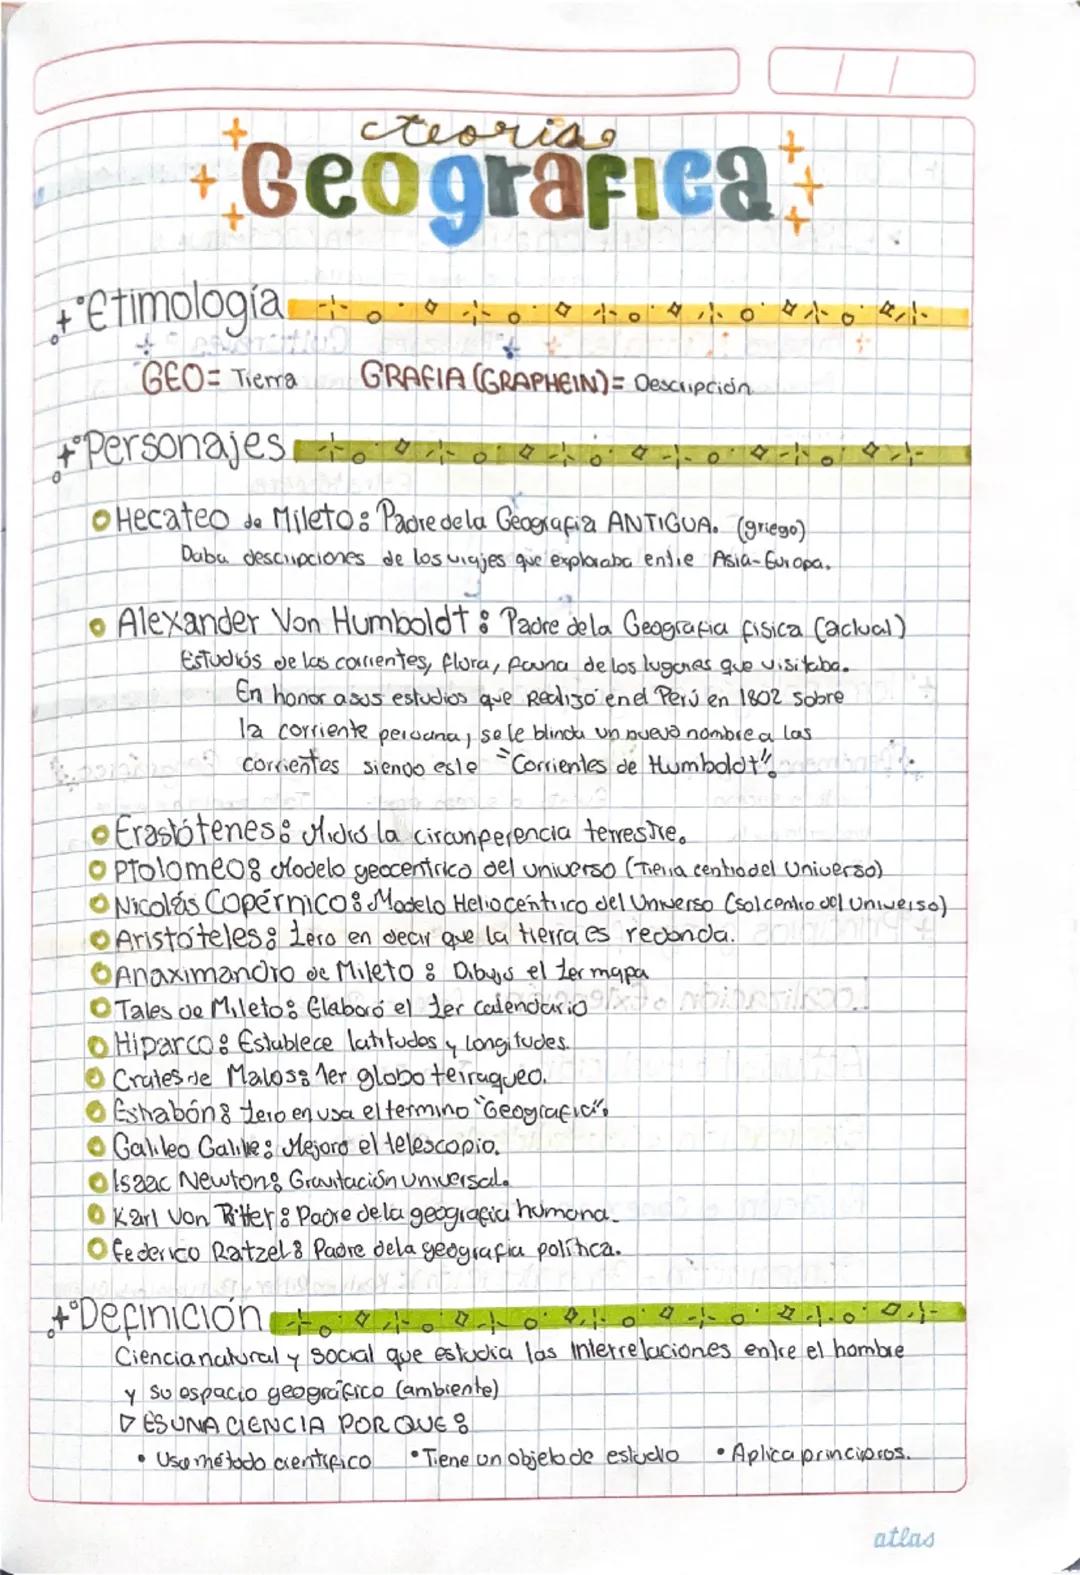 teoria
Geografica
Etimología
GEO= Tierra GRAFIA (GRAPHEIN)= Descripción
Personajes
Hecateo de Mileto: Padre de la Geografia ANTIGUA. (griego)
Daba descripciones de los viajes que exploraba entre Asia-Europa.
Alexander Von Humboldt: Padre de la Geografia fisica (actual)
Estudios de las corrientes, flora, fauna de los lugares que visitaba.
En honor a sus estudios que Realizó en el Perú en 1802 sobre
la corriente peruana, se le blinda un nuevo nombre a las
corrientes siendo este "Corrientes de Humboldt".
Erastótenes: Midió la circunferencia terrestre.
Ptolomeo: Modelo geocentrico del universo (Tierra centro del Universo)
Nicolás Copérnico: Modelo Heliocéntrico del Universo (sol centro del Universo)
Aristóteles: 1ero en decir que la tierra es redonda.
Anaximandro de Mileto: Dibujo el 1er mapa
Tales de Mileto: Elaboró el 1er calendario
Hiparco: Establece latitudes y longitudes.
Crates de Malos: 1er globo terraqueo.
Estrabón: 1ero en usa el termino "Geografia".
Galileo Galilei: Mejoro el telescopio.
Isaac Newton: Gravitación universal.
Karl Von Ritter: Padre de la geografia humana.
Federico Ratzel: Padre de la geografia política.
Definición
Ciencia natural y social que estudia las interrelaciones entre el hombre
y su espacio geográfico (ambiente)
▷ ES UNA CIENCIA PORQUE:
• Usa método cientifico • Tiene un objeto de estudio • Aplica principios.
atlas